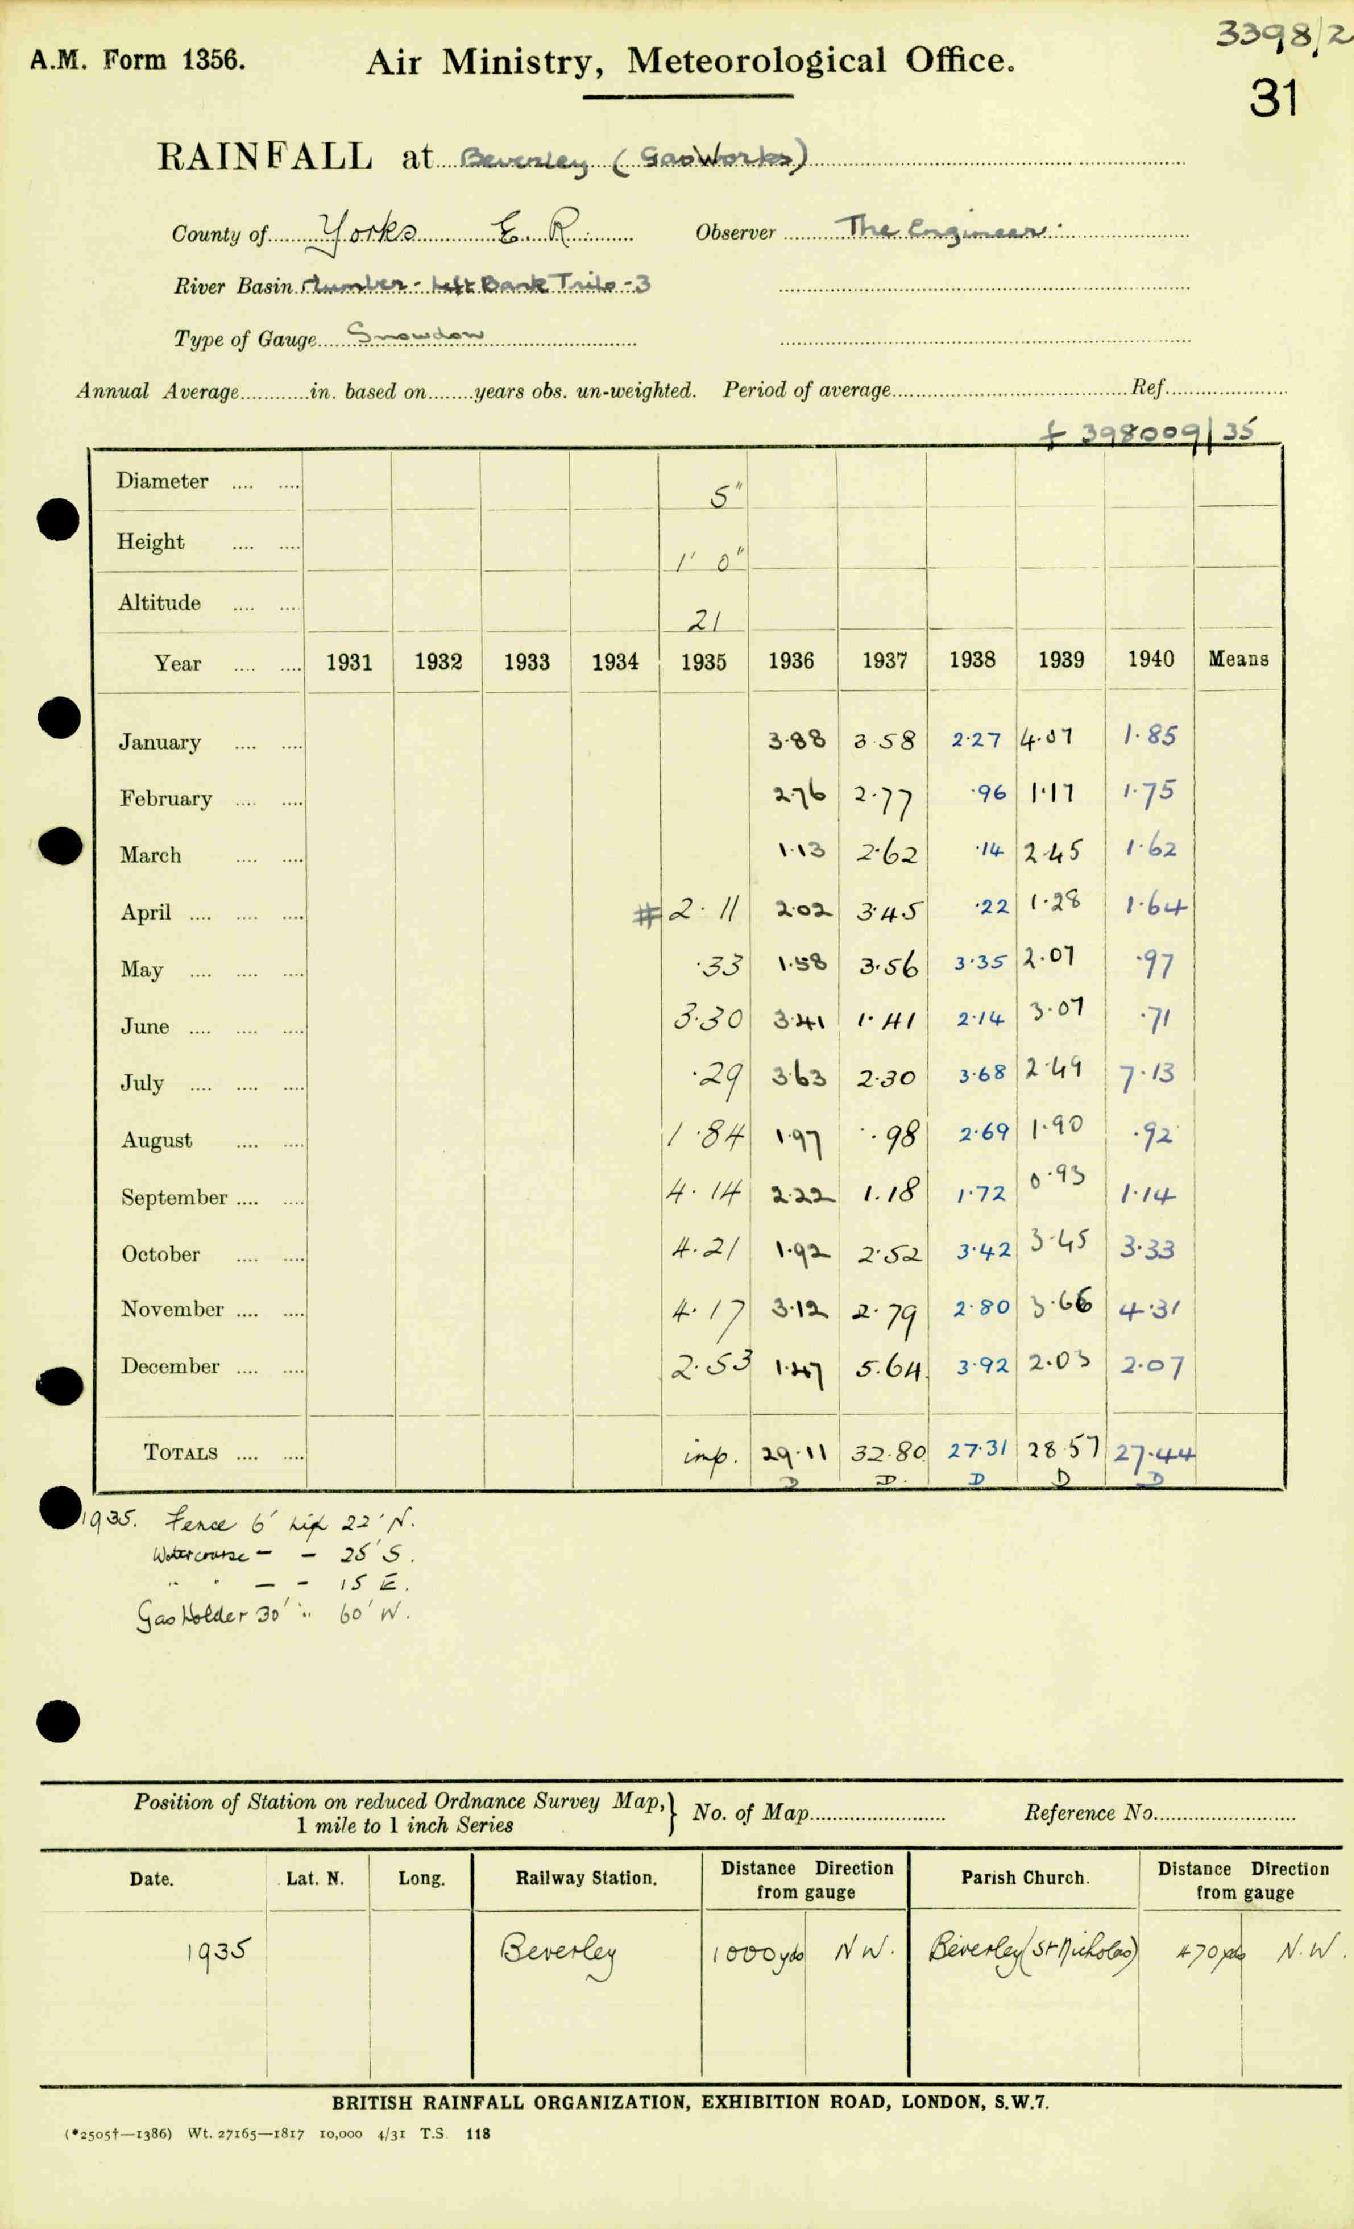 3398/2
A.M. Form 1356. Air Ministry, Meteorological Office.
31
RAINFALL at Beverley (GasWorks)
County of Yorks E. R. Observer The Engineer.
River Basin Humber - Left Bank Tribs - 3
Type of Gauge Snowdon
Annual Average in. based on years obs. un-weighted. Period of average Ref.
£ 398009/35
Diameter 5"
Height 1' 0"
Altitude 21
Year 1931 1932 1933 1934 1935 1936 1937 1938 1939 1940 Means
January 3.88 3.58 2.27 4.07 1.85
February 2.76 2.77 .96 1.17 1.75
March 1.13 2.62 .14 2.45 1.62
April # 2.11 2.02 3.45 .22 1.28 1.64
May .33 1.58 3.56 3.35 2.07 .97
June 3.30 3.41 1.41 2.14 3.07 .71
July .29 3.63 2.30 3.68 2.49 7.13
August 1.84 1.97 .98 2.69 1.90 .92
September 4.14 2.22 1.18 1.72 0.93 1.14
October 4.21 1.92 2.52 3.42 3.45 3.33
November 4.17 3.12 2.79 2.80 3.66 4.31
December 2.53 1.47 5.64 3.92 2.03 2.07
TOTALS imp. 29.11 32.80 27.31 28.57 27.44
D D. D D D
1935. Fence 6' high 22' N.
Watercourse - - 25' S.
" " - - 15 E.
Gas Holder 30' " 60' W.
Position of Station on reduced Ordnance Survey Map, } No. of Map Reference No.
1 mile to 1 inch Series
Date. Lat. N. Long. Railway Station. Distance Direction from gauge Parish Church. Distance Direction from gauge
1935 Beverley 1000 yds N W. Beverley (St Nicholas) 470 yds N. W.
BRITISH RAINFALL ORGANIZATION, EXHIBITION ROAD, LONDON, S.W.7.
(*2505†—1386) Wt. 27165—1817 10,000 4/31 T.S. 118